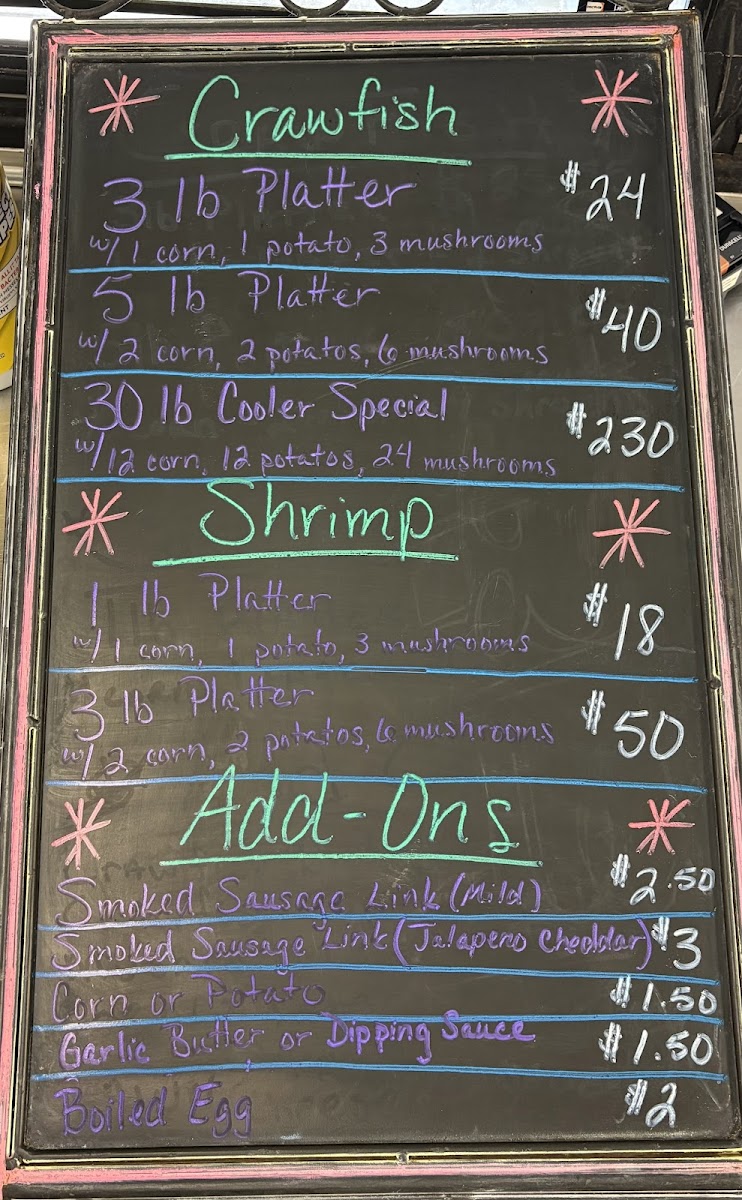 Crawfish
3 lb Platter $24
w/1 corn, 1 potato, 3 mushrooms
5 lb Platter $40
w/2 corn, 2 potatos, 6 mushrooms
30 lb Cooler Special $230
w/12 corn, 12 potatos, 24 mushrooms
Shrimp
1 lb Platter $18
w/1 corn, 1 potato, 3 mushrooms
3 lb Platter $50
w/2 corn, 2 potatos, 6 mushrooms
Add-Ons
Smoked Sausage Link (Mild) $2.50
Smoked Sausage Link (Jalapeno Cheddar) $3
Corn or Potato $1.50
Garlic Butter or Dipping Sauce $1.50
Boiled Egg $2
DURACELL